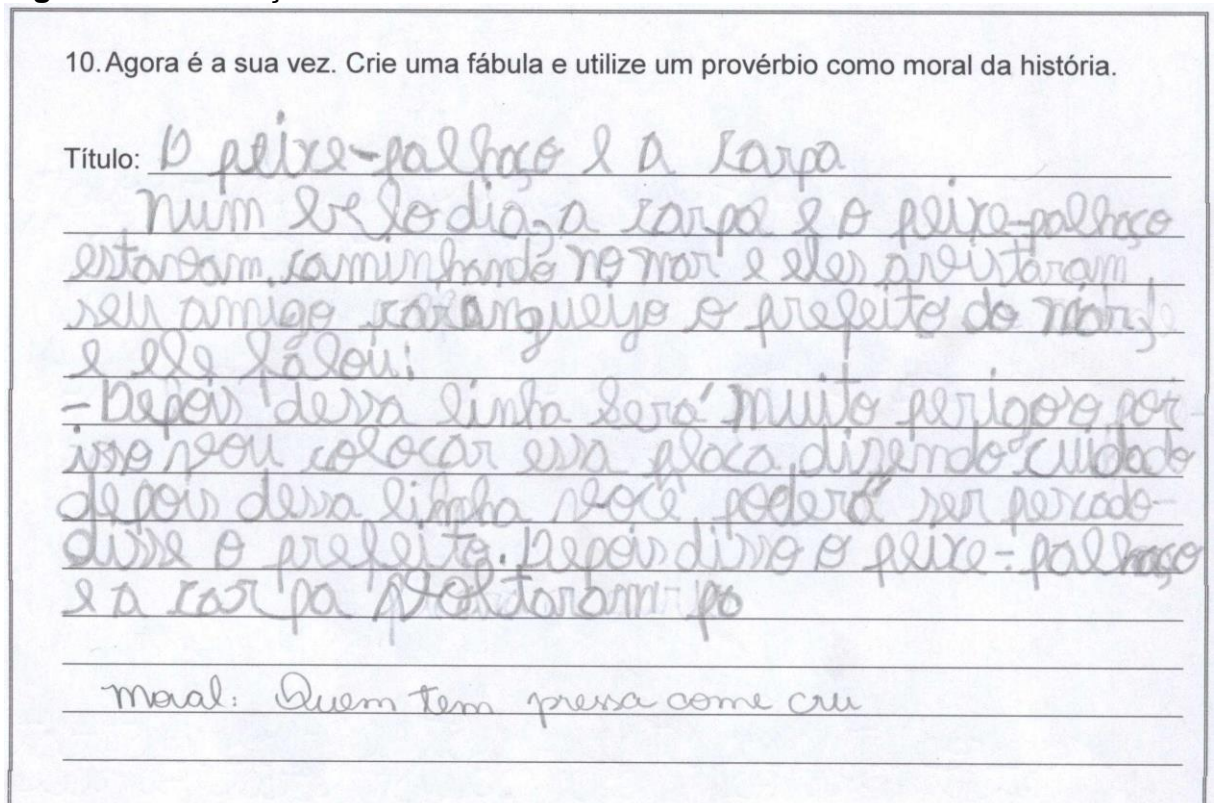 10. Agora é a sua vez. Crie uma fábula e utilize um provérbio como moral da história.
Título: O peixe-palhaço e a carpa
Num belo dia, a carpa e o peixe-palhaço
estavam caminhando no mar e eles avistaram
seu amigo carangueijo o prefeito do mar,
e ele falou:
-Depois dessa linha será muito perigoso por
isso vou colocar essa placa dizendo cuidado
depois dessa linha você poderá ser pescado-
disse o prefeito. Depois disso o peixe-palhaço
e a carpa voltaram po
Moral: Quem tem pressa come cru